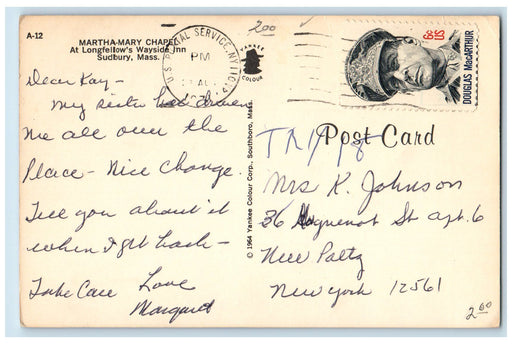 A-12
MARTHA-MARY CHAPEL
At Longfellow's Wayside Inn
Sudbury, Mass.
U.S. POSTAL SERVICE, NY
PM
2.00
YANKEE
COLOUR
US 6c
DOUGLAS MacARTHUR
Dear Kay -
My sister has driven
me all over the
Place - Nice Change.
Tell you about it
when I get back -
Take Care Love
Margaret
© 1964 Yankee Colour Corp., Southboro, Mass.
Post Card
Mrs K. Johnson
36 Huguenot St apt. 6
New Paltz
New York 12561
2.00